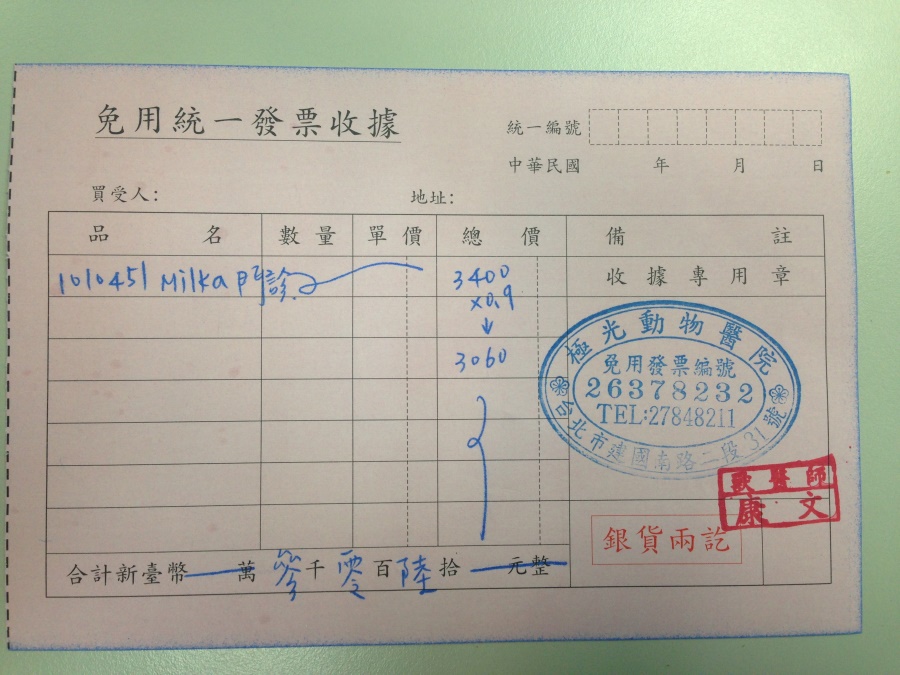 免用統一發票收據
統一編號
中華民國 年 月 日
買受人： 地址：
品名 數量 單價 總價 備註
1010451 Milka 門診 3400 收據專用章
×0.9
↓
3060
極光動物醫院
免用發票編號
26378232
TEL:27848211
台北市建國南路二段31號
獸醫師
康文
銀貨兩訖
合計新臺幣 萬 參 千 零 百 陸 拾 元整